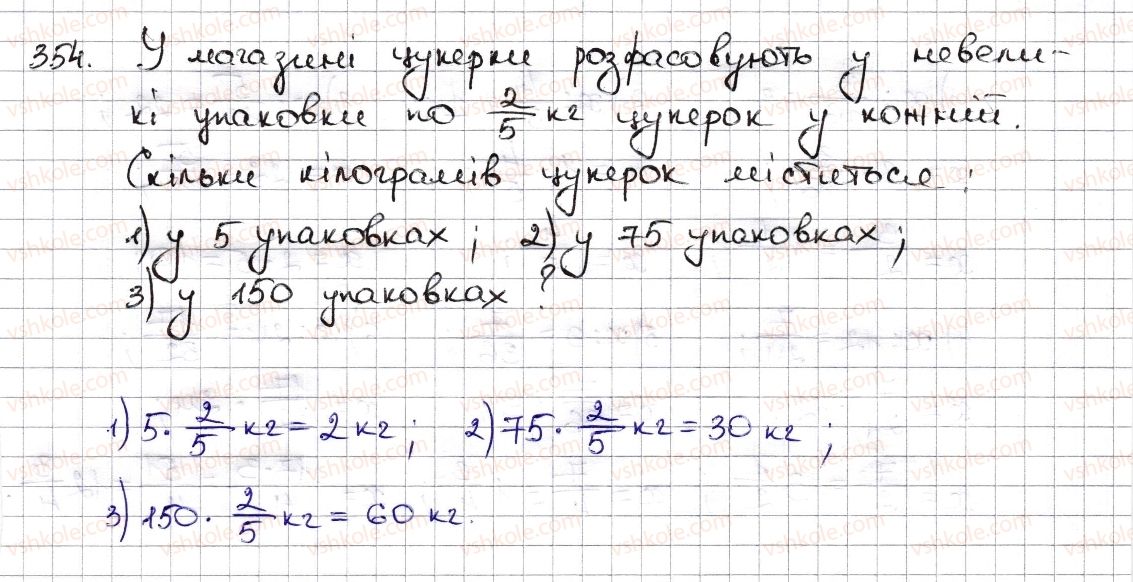 354. У магазині цукерки розфасовують у невели-
кі упаковки по 2/5 кг цукерок у кожній.
Скільки кілограмів цукерок міститься:
1) у 5 упаковках; 2) у 75 упаковках;
3) у 150 упаковках?
1) 5 · 2/5 кг = 2 кг; 2) 75 · 2/5 кг = 30 кг;
3) 150 · 2/5 кг = 60 кг.